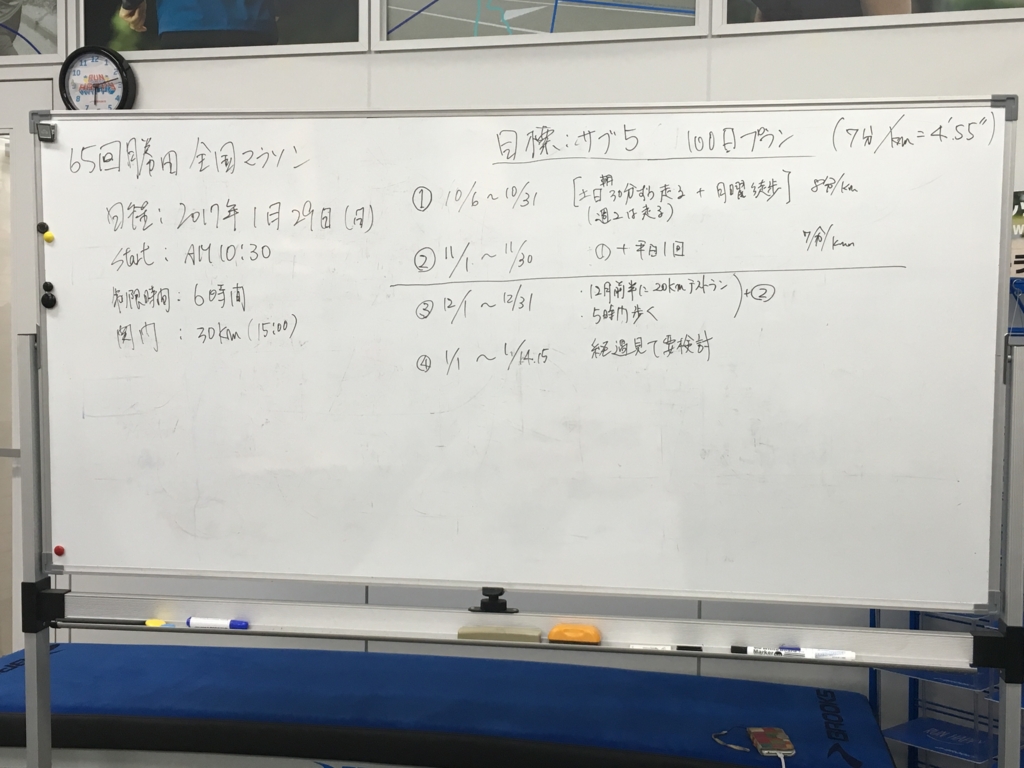 65回勝田全国マラソン
日程：2017年1月29日(日)
Start：AM10:30
制限時間：6時間
関門：30km(15:00)
目標：サブ5 100日プラン (7分/km=4'55")
① 10/6～10/31 [土日朝30分ずつ走る + 月曜徒歩] 8分/km
(週2は走る)
② 11/1～11/30 ①+平日1回 7分/km
③ 12/1～12/31 ・12月前半に20kmテストラン
・5時間歩く )+②
④ 1/1～1/14.15 経過見て要検討
Marker
BROOKS